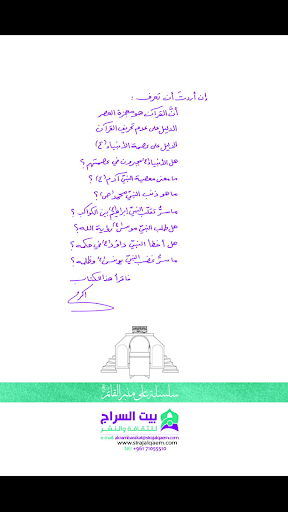 إن أردتَ أن تعرف :
أنَّ القرآن هو معجزة العصر
الدليل على عدم تحريف القرآن
الدليل على عصمة الأنبياء (ع)
هل الأنبياء (ع) مجبورون في عصمتهم ؟
ما معنى معصية النبيّ آدم (ع) ؟
ما هو ذنب النبيّ محمد (ص) ؟
ما سرُّ تنقّل النبيّ إبراهيم (ع) بين الكواكب ؟
هل طلب النبيّ موسى (ع) رؤية الله ؟
هل أخطأ النبيّ داوود (ع) في حكمه ؟
ما سرُّ غضب النبيّ يونس (ع) وظلمه ؟
فاقرأ هذا الكتاب
أكرم
سلسلة على منبر القائم
بيت السراج
للثقافة والنشر
e-mail: akrambarakat@sirajalqaem.com
www.sirajalqaem.com
tel: +961 71055510